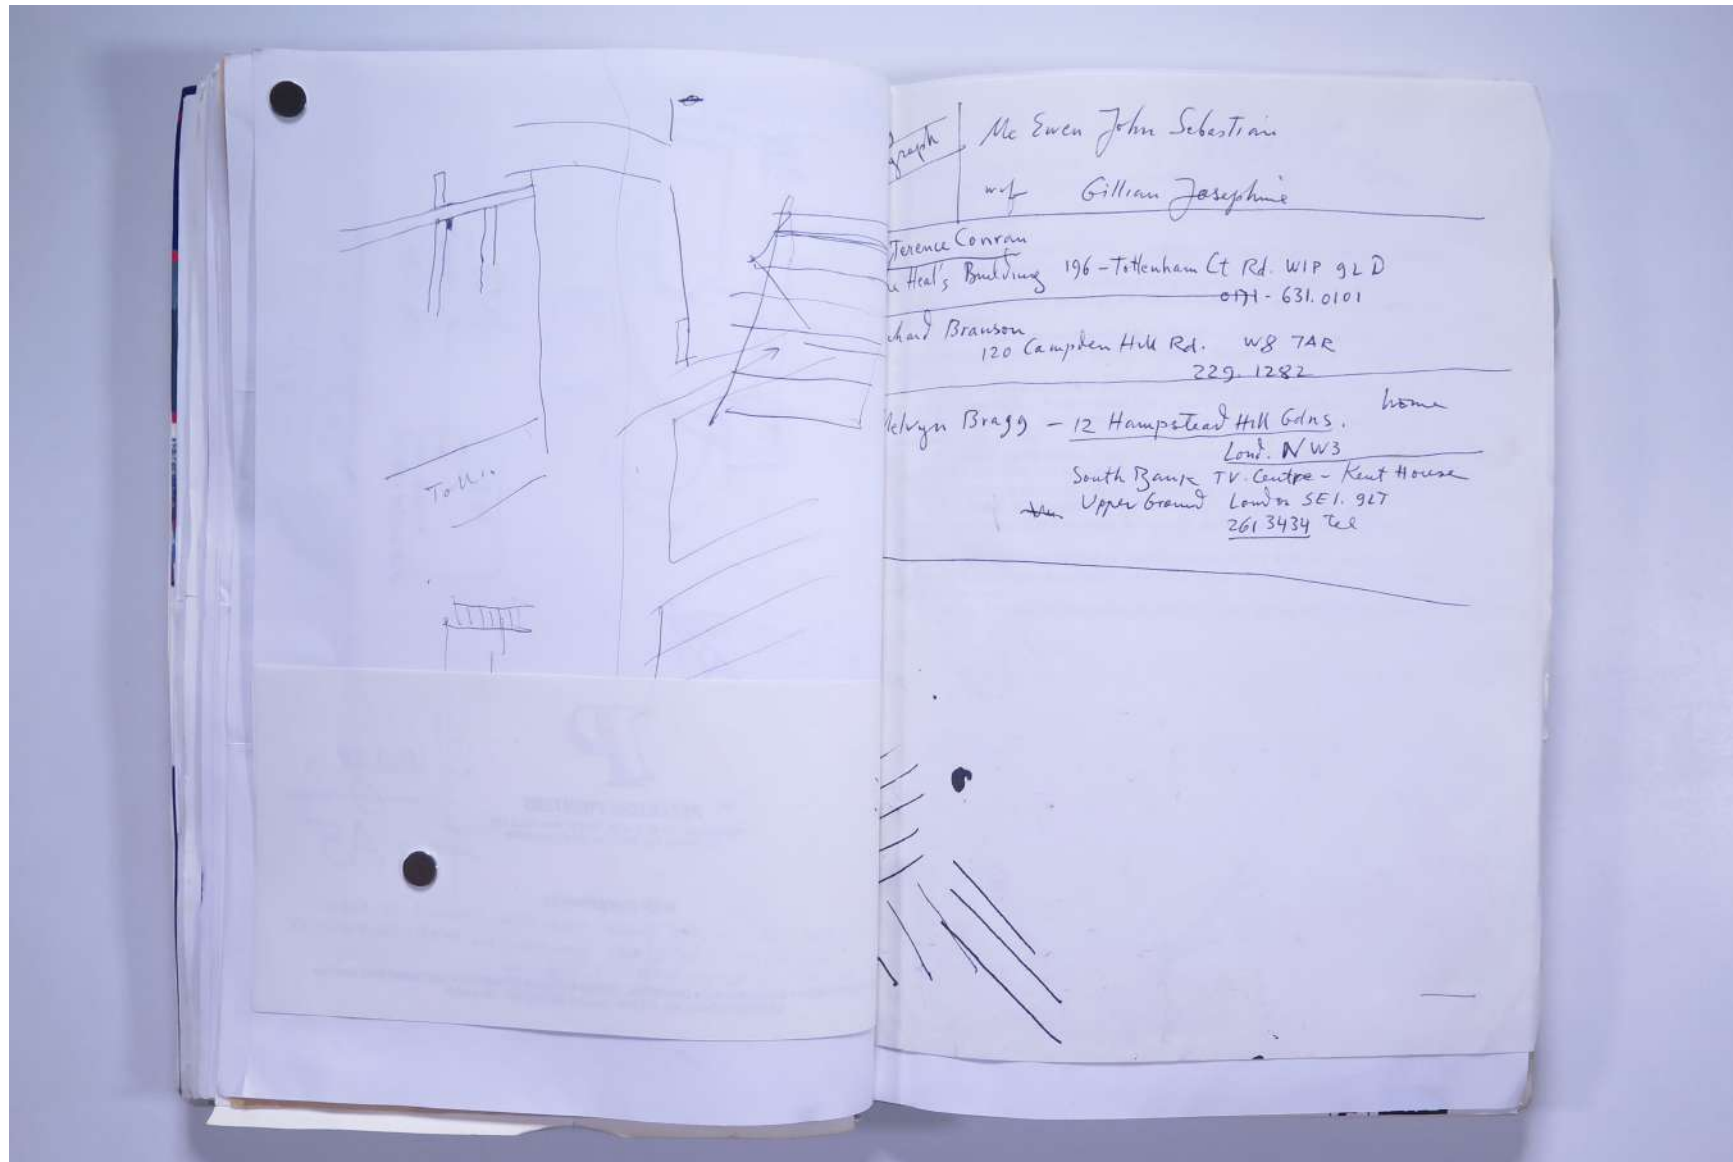 graph
Mc Ewen John Sebastian
Gillian Josephine
Terence Conran
Heal's Building 196 - Tottenham Ct Rd. W1P 9LD
0171 - 631.0101
chard Branson
120 Campden Hill Rd. W8 7AR
229.1282
home
elvyn Bragg - 12 Hampstead Hill Gdns.
Lond. NW3
South Bank TV. Centre - Kent House
Upper Ground London SE1. 9LT
261 3434 Tel